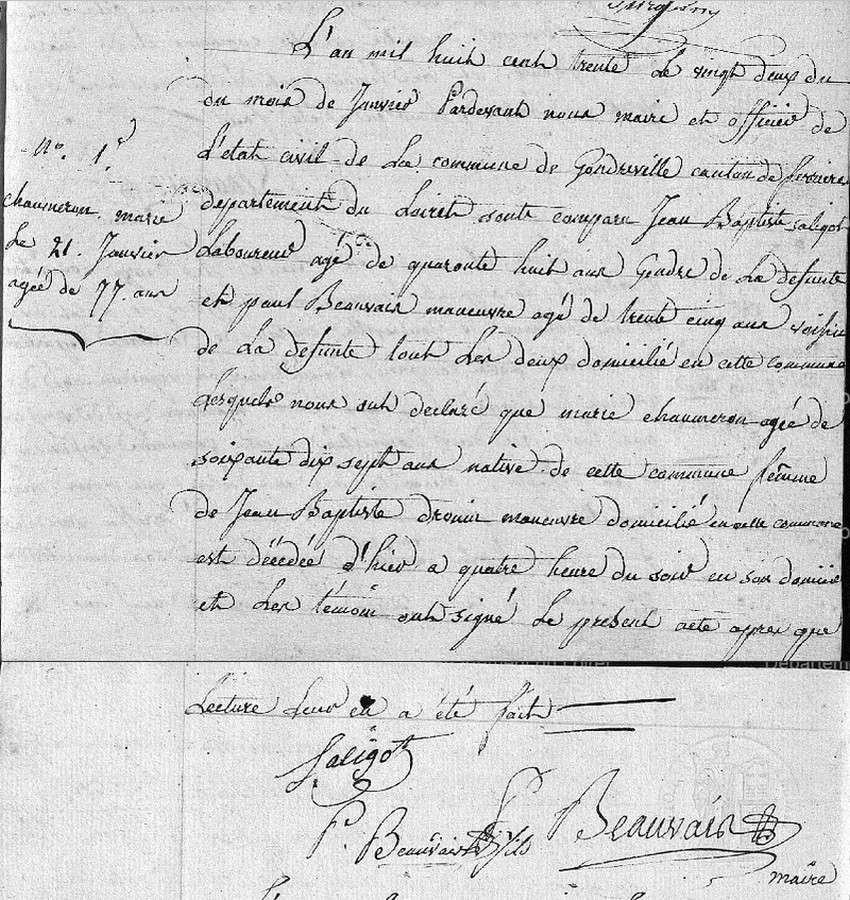 L'an mil huit cent trente Le vingt deux du
du mois de Janvier Pardevant nous maire et officier de
L'etat civil de La commune de Gondreville canton de ferriere
departement du Loiret sont comparu Jean Baptiste saligot
Laboureur agé de quaronte huit ans Gendre de La defunte
et paul Beauvais maneuvre agé de trente cinq ans voisin
de La defunte tout Les deux domicilié en cette commune
Lesquels nous ont declaré que marie chaumeron agéé de
soixante dix sept ans native de cette commune fêmme
de Jean Baptiste drouin maneuvre domicilié en cette commune
est décédéé d'hier a quatre heure du soir en son domicile
et Les témoin ont signé Le present acte apres que
Lecture leur en a été fait
No. 1er
chaumeron marie
Le 21. Janvier
agéé de 77. ans
Saligot
P. Beauvais fils
Beauvais
maire